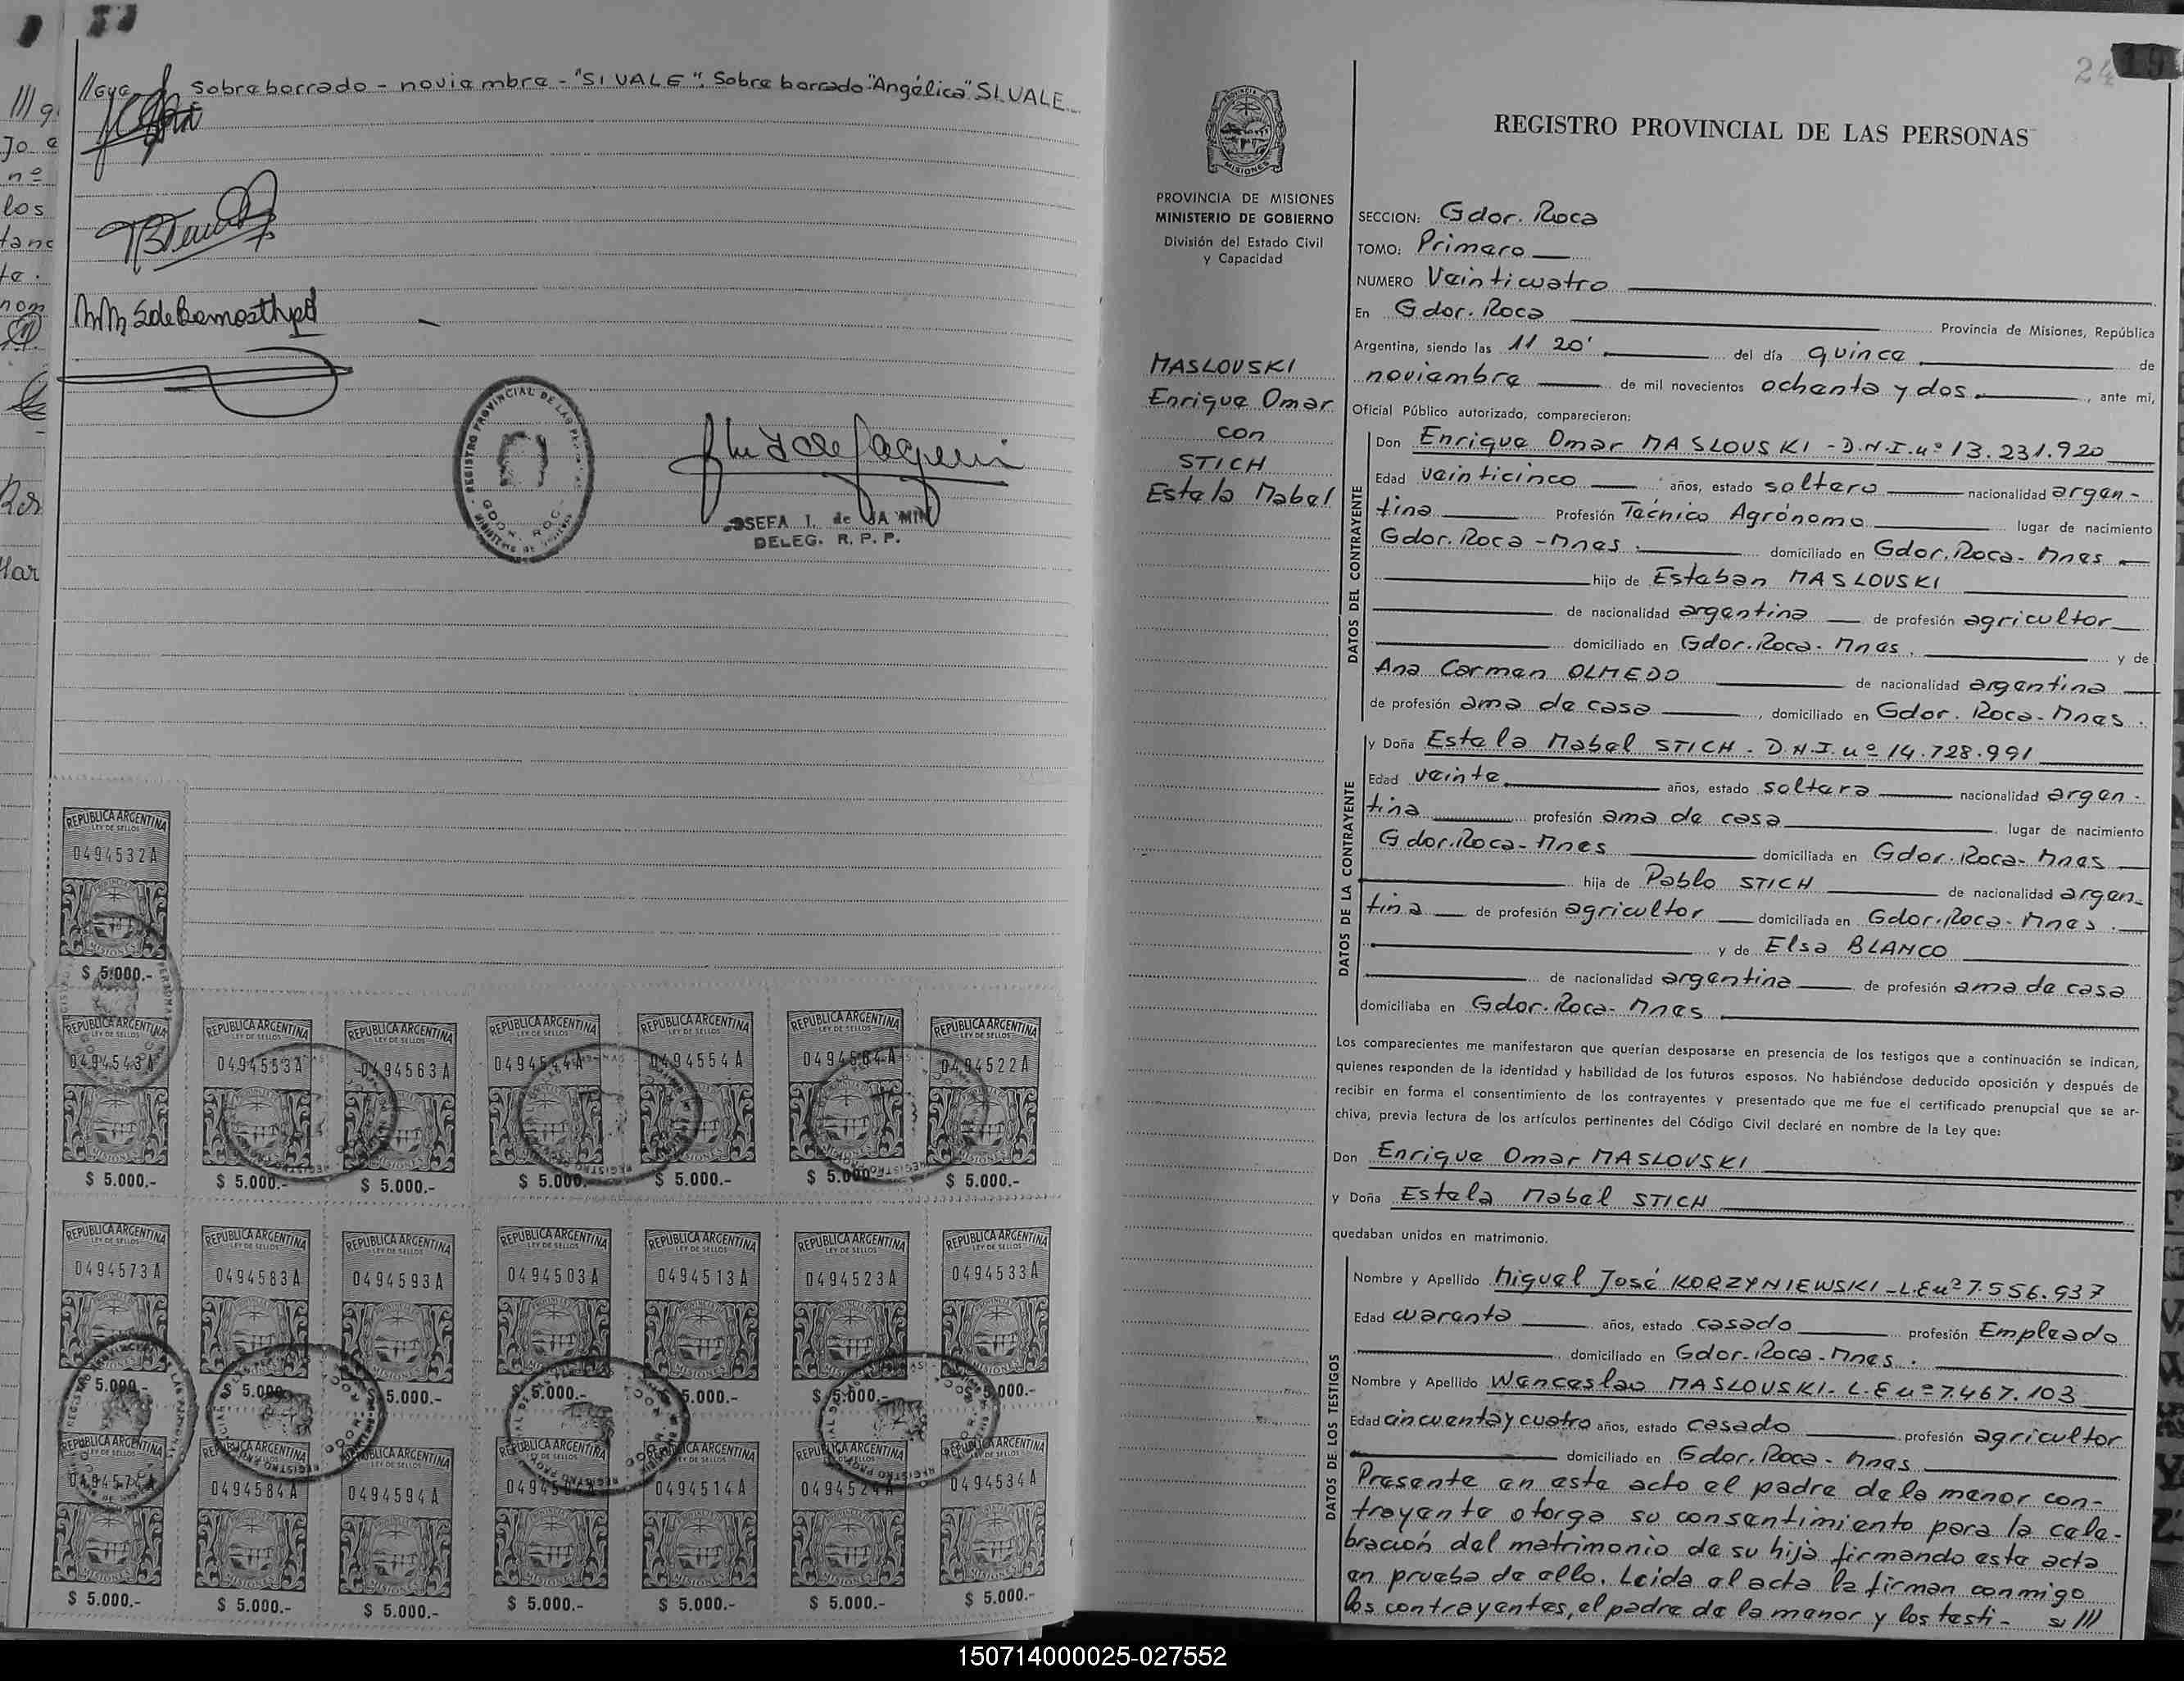 Sobreborrado - noviembre - "SI VALE". Sobre borrado "Angélica" SI VALE
REGISTRO PROVINCIAL DE LAS PERSONAS
GDOR. ROC
DELEG. R. P. P.
REPUBLICA ARGENTINA
LEY DE SELLOS
0494532A
MISIONES
$ 5.000.-
REPUBLICA ARGENTINA REPUBLICA ARGENTINA REPUBLICA ARGENTINA REPUBLICA ARGENTINA REPUBLICA ARGENTINA REPUBLICA ARGENTINA REPUBLICA ARGENTINA
LEY DE SELLOS LEY DE SELLOS LEY DE SELLOS LEY DE SELLOS LEY DE SELLOS LEY DE SELLOS LEY DE SELLOS
0494543A 0494553A 0494563A 0494544A 0494554A 0494564A 0494522A
MISIONES MISIONES MISIONES MISIONES MISIONES MISIONES MISIONES
$ 5.000.- $ 5.000.- $ 5.000.- $ 5.000.- $ 5.000.- $ 5.000.- $ 5.000.-
REPUBLICA ARGENTINA REPUBLICA ARGENTINA REPUBLICA ARGENTINA REPUBLICA ARGENTINA REPUBLICA ARGENTINA REPUBLICA ARGENTINA REPUBLICA ARGENTINA
LEY DE SELLOS LEY DE SELLOS LEY DE SELLOS LEY DE SELLOS LEY DE SELLOS LEY DE SELLOS LEY DE SELLOS
0494573A 0494583A 0494593A 0494503A 0494513A 0494523A 0494533A
MISIONES MISIONES MISIONES MISIONES MISIONES MISIONES MISIONES
5.000.- $ 5.000.- 5.000.- 5.000.- 5.000.- $ 5.000.- 5.000.-
REPUBLICA ARGENTINA REPUBLICA ARGENTINA REPUBLICA ARGENTINA REPUBLICA ARGENTINA REPUBLICA ARGENTINA REPUBLICA ARGENTINA REPUBLICA ARGENTINA
0494584A 0494594A 0494514A 0494524A 0494534A
$ 5.000.- $ 5.000.- $ 5.000.- $ 5.000.- $ 5.000.- $ 5.000.- $ 5.000.-
24
PROVINCIA DE MISIONES
MINISTERIO DE GOBIERNO
División del Estado Civil
y Capacidad
MASLOVSKI
Enrique Omar
con
STICH
Estela Mabel
REGISTRO PROVINCIAL DE LAS PERSONAS
SECCION: Gdor. Roca
TOMO: Primero
NUMERO Veinticuatro
En Gdor. Roca Provincia de Misiones, República
Argentina, siendo las 11 20' del día quince de
noviembre de mil novecientos ochenta y dos, ante mi,
Oficial Público autorizado, comparecieron:
DATOS DEL CONTRAYENTE
Don Enrique Omar MASLOVSKI - D.N.I. nº 13.231.920
Edad veinticinco años, estado soltero nacionalidad argen-
tina Profesión Técnico Agrónomo lugar de nacimiento
Gdor. Roca - Mnes. domiciliado en Gdor. Roca - Mnes
hijo de Esteban MASLOVSKI
de nacionalidad argentina de profesión agricultor
domiciliado en Gdor. Roca - Mnes. y de
Ana Carmen OLMEDO de nacionalidad argentina
de profesión ama de casa, domiciliado en Gdor. Roca - Mnes.
DATOS DE LA CONTRAYENTE
y Doña Estela Mabel STICH - D.N.I. nº 14.728.991
Edad veinte años, estado soltera nacionalidad argen-
tina profesión ama de casa lugar de nacimiento
Gdor. Roca - Mnes domiciliada en Gdor. Roca - Mnes
hija de Pablo STICH de nacionalidad argen-
tina de profesión agricultor domiciliada en Gdor. Roca - Mnes.
y de Elsa BLANCO
de nacionalidad argentina de profesión ama de casa
domiciliaba en Gdor. Roca - Mnes
Los comparecientes me manifestaron que querían desposarse en presencia de los testigos que a continuación se indican,
quienes responden de la identidad y habilidad de los futuros esposos. No habiéndose deducido oposición y después de
recibir en forma el consentimiento de los contrayentes y presentado que me fue el certificado prenupcial que se ar-
chiva, previa lectura de los artículos pertinentes del Código Civil declaré en nombre de la Ley que:
Don Enrique Omar MASLOVSKI
y Doña Estela Mabel STICH
quedaban unidos en matrimonio.
DATOS DE LOS TESTIGOS
Nombre y Apellido Miguel José KORZYNIEWSKI - L.E nº 7.556.937
Edad cuarenta años, estado casado profesión Empleado
domiciliado en Gdor. Roca - Mnes.
Nombre y Apellido Wenceslao MASLOVSKI - L.E nº 7.467.103
Edad cincuenta y cuatro años, estado casado profesión agricultor
domiciliado en Gdor. Roca - Mnes
Presente en este acto el padre de la menor con-
trayente otorga su consentimiento para la cele-
bración del matrimonio de su hija firmando esta acta
en prueba de ello. Leida el acta la firman conmigo
los contrayentes, el padre de la menor y los testi- ///
150714000025-027552